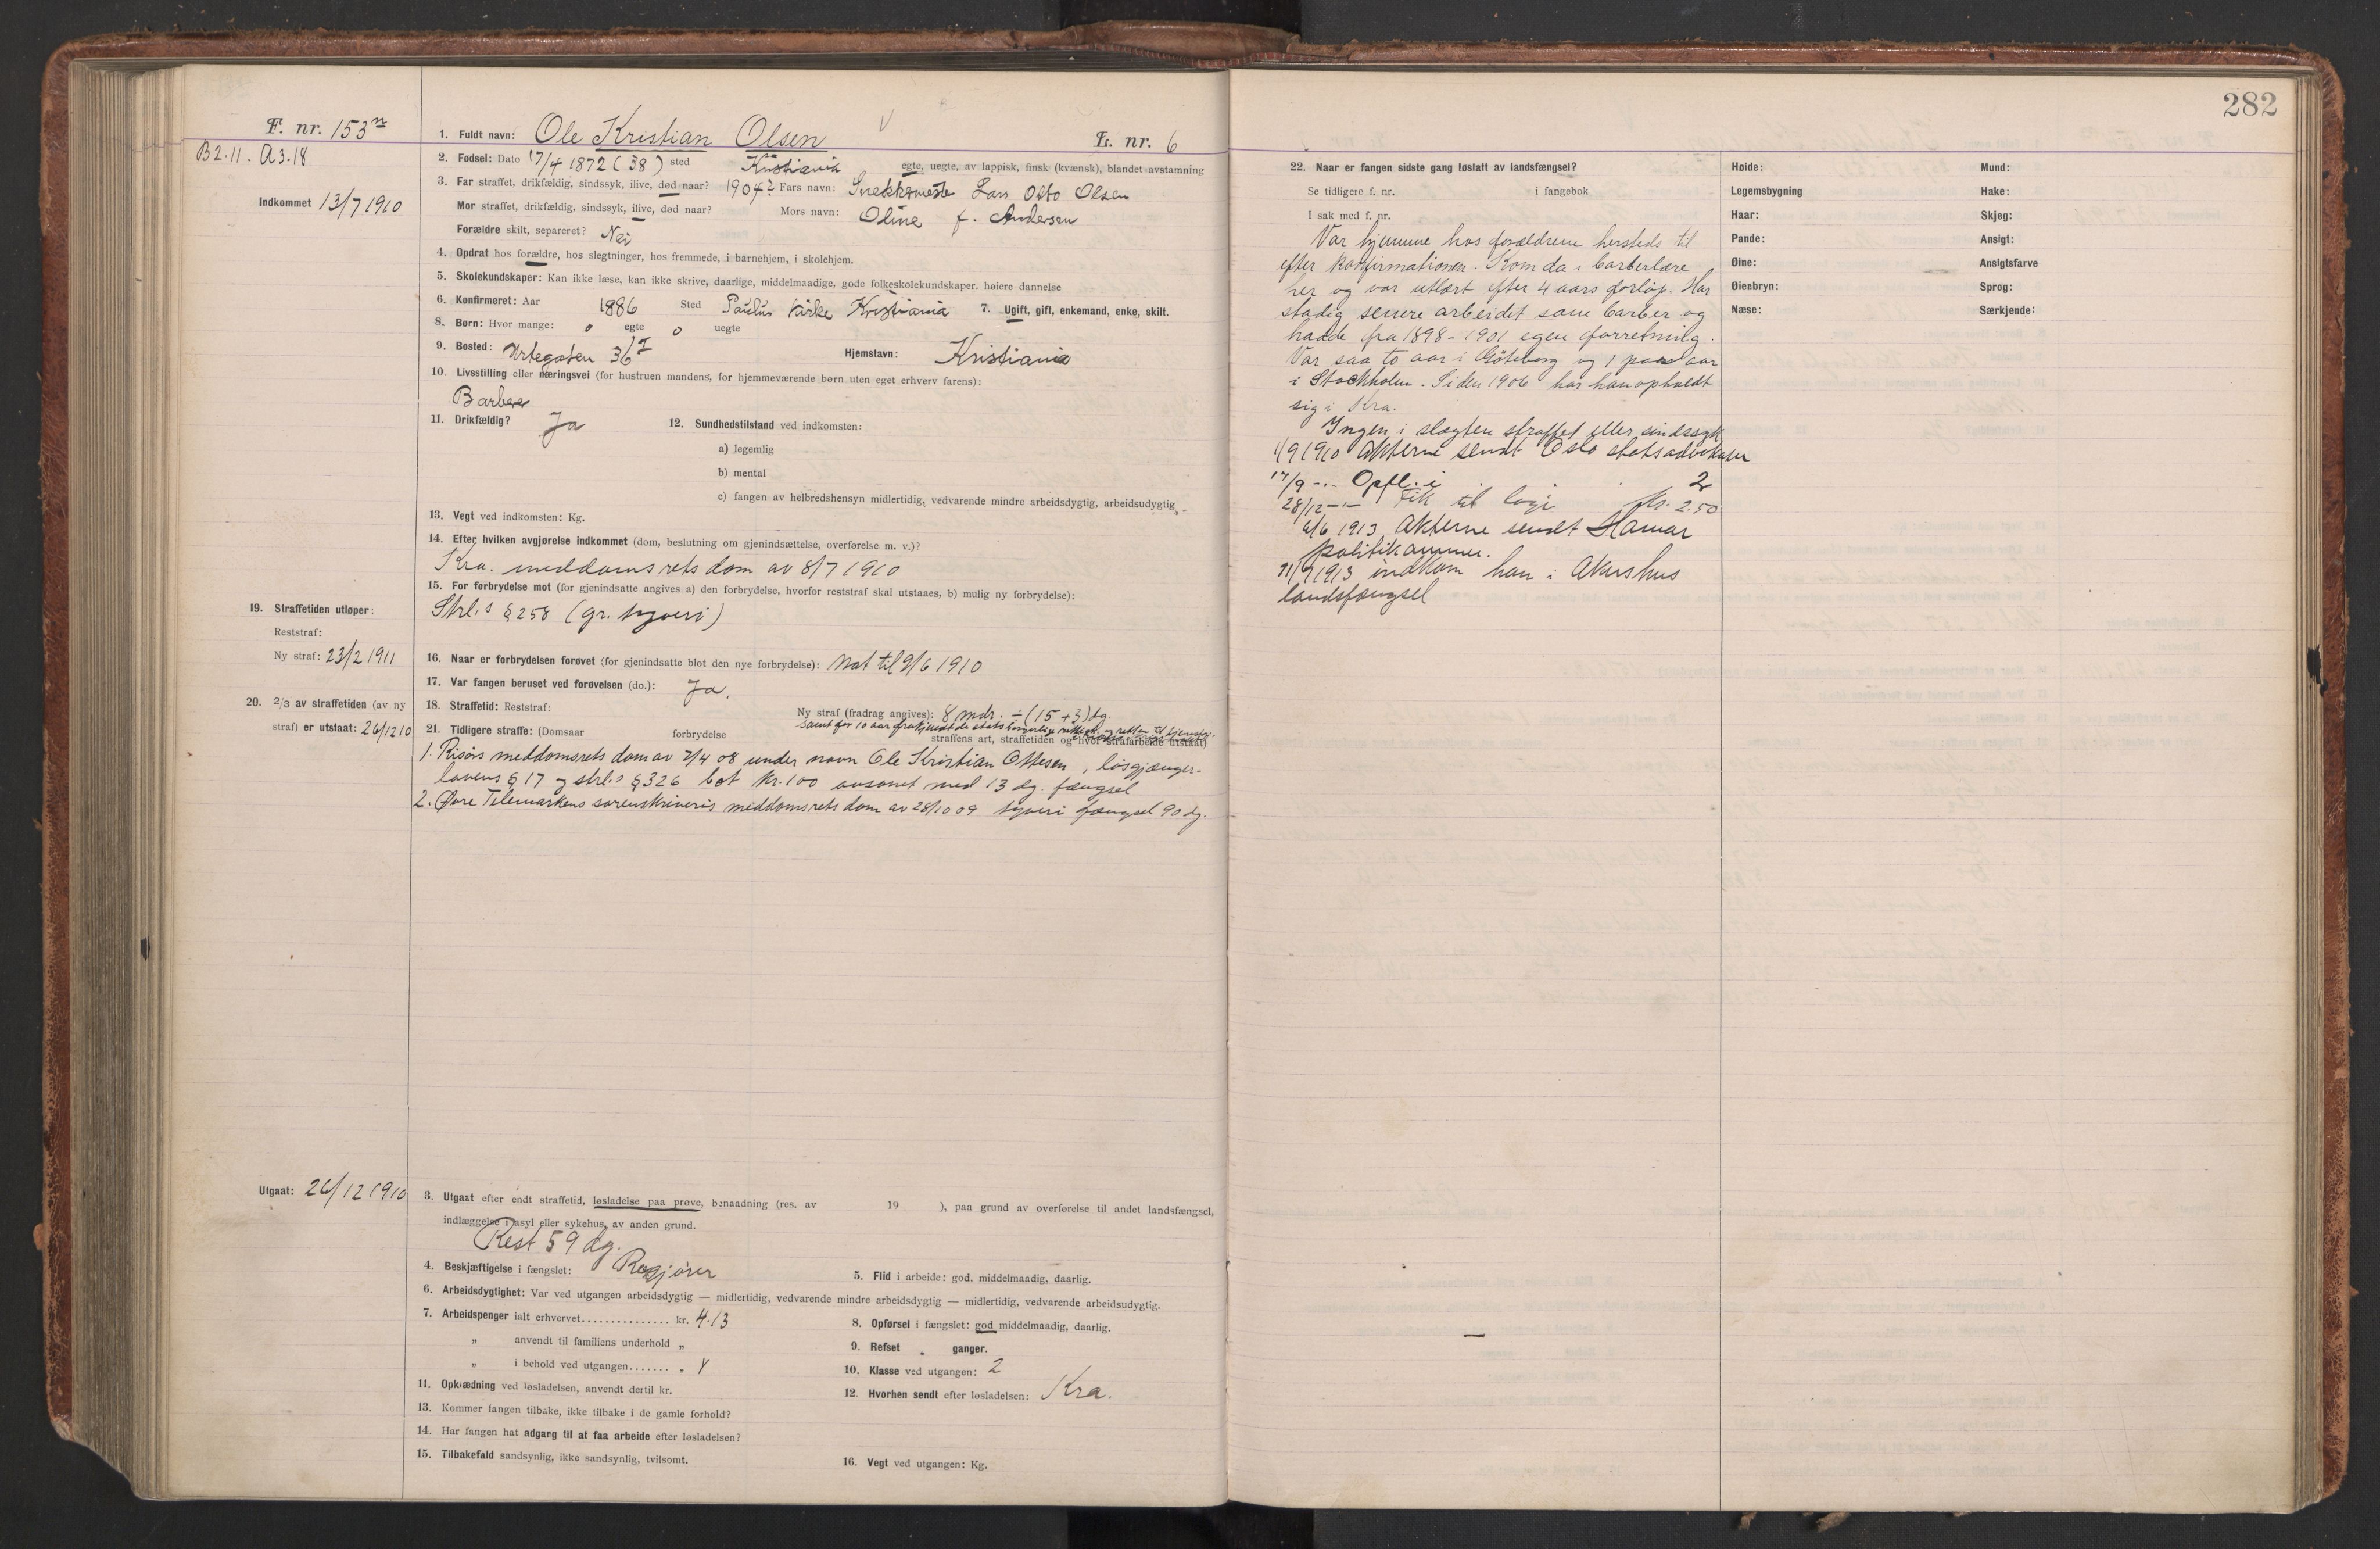 282
F. nr. 153ⁿ
B2.11. A3.18
Indkommet 13/7 1910
1. Fuldt navn: Ole Kristian Olsen L. nr. 6
2. Fødsel: Dato 17/4 1872 (38) sted Kristiania egte, uegte, av lappisk, finsk (kvænsk), blandet avstamning
3. Far straffet, drikfældig, sindssyk, ilive, død naar? 1904? Fars navn: Snekkermester Lars Otto Olsen
Mor straffet, drikfældig, sindssyk, ilive, død naar? Mors navn: Oline f. Andersen
Forældre skilt, separeret? Nei
4. Opdrat hos forældre, hos slegtninger, hos fremmede, i barnehjem, i skolehjem.
5. Skolekundskaper: Kan ikke læse, kan ikke skrive, daarlige, middelmaadige, gode folkeskolekundskaper. høiere dannelse
6. Konfirmeret: Aar 1886 Sted Paulus Kirke Kristiania 7. Ugift, gift, enkemand, enke, skilt.
8. Børn: Hvor mange: 0 egte 0 uegte
9. Bosted: Urtegaten 36 I Hjemstavn: Kristiania
10. Livsstilling eller næringsvei (for hustruen mandens, for hjemmeværende børn uten eget erhverv farens):
Barber
11. Drikfældig? Ja 12. Sundhedstilstand ved indkomsten:
a) legemlig
b) mental
c) fangen av helbredshensyn midlertidig, vedvarende mindre arbeidsdygtig, arbeidsudygtig
13. Vegt ved indkomsten: Kg.
14. Efter hvilken avgjørelse indkommet (dom, beslutning om gjenindsættelse, overførelse m. v.)?
Kra. meddomsrets dom av 8/7 1910
15. For forbrydelse mot (for gjenindsatte angives a) den forbrydelse, hvorfor reststraf skal utstaaes, b) mulig ny forbrydelse):
Strl.s § 258 (gr. tyveri)
19. Straffetiden utløper:
Reststraf:
Ny straf: 23/2 1911
16. Naar er forbrydelsen forøvet (for gjenindsatte blot den nye forbrydelse): Nat til 9/6 1910
17. Var fangen beruset ved forøvelsen (do.): Ja.
20. 2/3 av straffetiden (av ny
straf) er utstaat: 26/12 10
18. Straffetid: Reststraf: Ny straf (fradrag angives): 8 mdr. ÷ (15 + 3) dg.
samt for 10 aar frakjendt de statsborgerlige
21. Tidligere straffe: (Domsaar forbrydelse straffens art, straffetiden og hvor strafarbeide utstaat)
1. Risørs meddomsrets dom av 7/4 08 under navn Ole Kristian Ottesen, løsgjænger-
lovens § 17 og strl.s § 326 bot kr. 100 avsonet med 13 dg. fængsel
2. Øvre Telemarkens sorenskriveris meddomsrets dom av 28/10 09 tyveri fængsel 90 dg.
Utgaat: 26/12 1910
3. Utgaat efter endt straffetid, løsladelse paa prøve, benaadning (res. av 19 ), paa grund av overførelse til andet landsfængsel,
indlæggelse i asyl eller sykehus, av anden grund.
Rest 59 dg.
4. Beskjæftigelse i fængslet: Rengjører 5. Flid i arbeide: god, middelmaadig, daarlig.
6. Arbeidsdygtighet: Var ved utgangen arbeidsdygtig — midlertidig, vedvarende mindre arbeidsdygtig — midlertidig, vedvarende arbeidsudygtig.
7. Arbeidspenger ialt erhvervet............... kr. 4.13 8. Opførsel i fængslet: god middelmaadig, daarlig.
„ anvendt til familiens underhold „ 9. Refset „ ganger.
„ i behold ved utgangen....... „ 10. Klasse ved utgangen: 2
11. Opklædning ved løsladelsen, anvendt dertil kr. 12. Hvorhen sendt efter løsladelsen: Kra.
13. Kommer fangen tilbake, ikke tilbake i de gamle forhold?
14. Har fangen hat adgang til at faa arbeide efter løsladelsen?
15. Tilbakefald sandsynlig, ikke sandsynlig, tvilsomt. 16. Vegt ved utgangen: Kg.
22. Naar er fangen sidste gang løslatt av landsfængsel?
Se tidligere f. nr. i fangebok
I sak med f. nr.
Var hjemme hos forældrene hersteds til
efter konfirmationen. Kom da i barberlære
her og var utlært efter 4 aars forløp. Har
stadig senere arbeidet som barber og
hadde fra 1898 - 1901 egen forretning.
Var saa to aar i Göteborg og 1 par aar
i Stockholm. Siden 1906 har han opholdt
sig i Kra.
Ingen i slegten straffet eller sindssyk
1/9 1910 Akterne sendt Oslo statsadvokater
17/9 -.- Opfl. i 2
28/12 -.- Fik til logi kr. 2.50
6/6 1913 Akterne sendt Hamar
politikammer.
11/7 1913 indkom han i Akershus
landsfængsel
Høide: Mund:
Legemsbygning Hake:
Haar: Skjeg:
Pande: Ansigt:
Øine: Ansigtsfarve
Øienbryn: Sprog:
Næse: Særkjende: